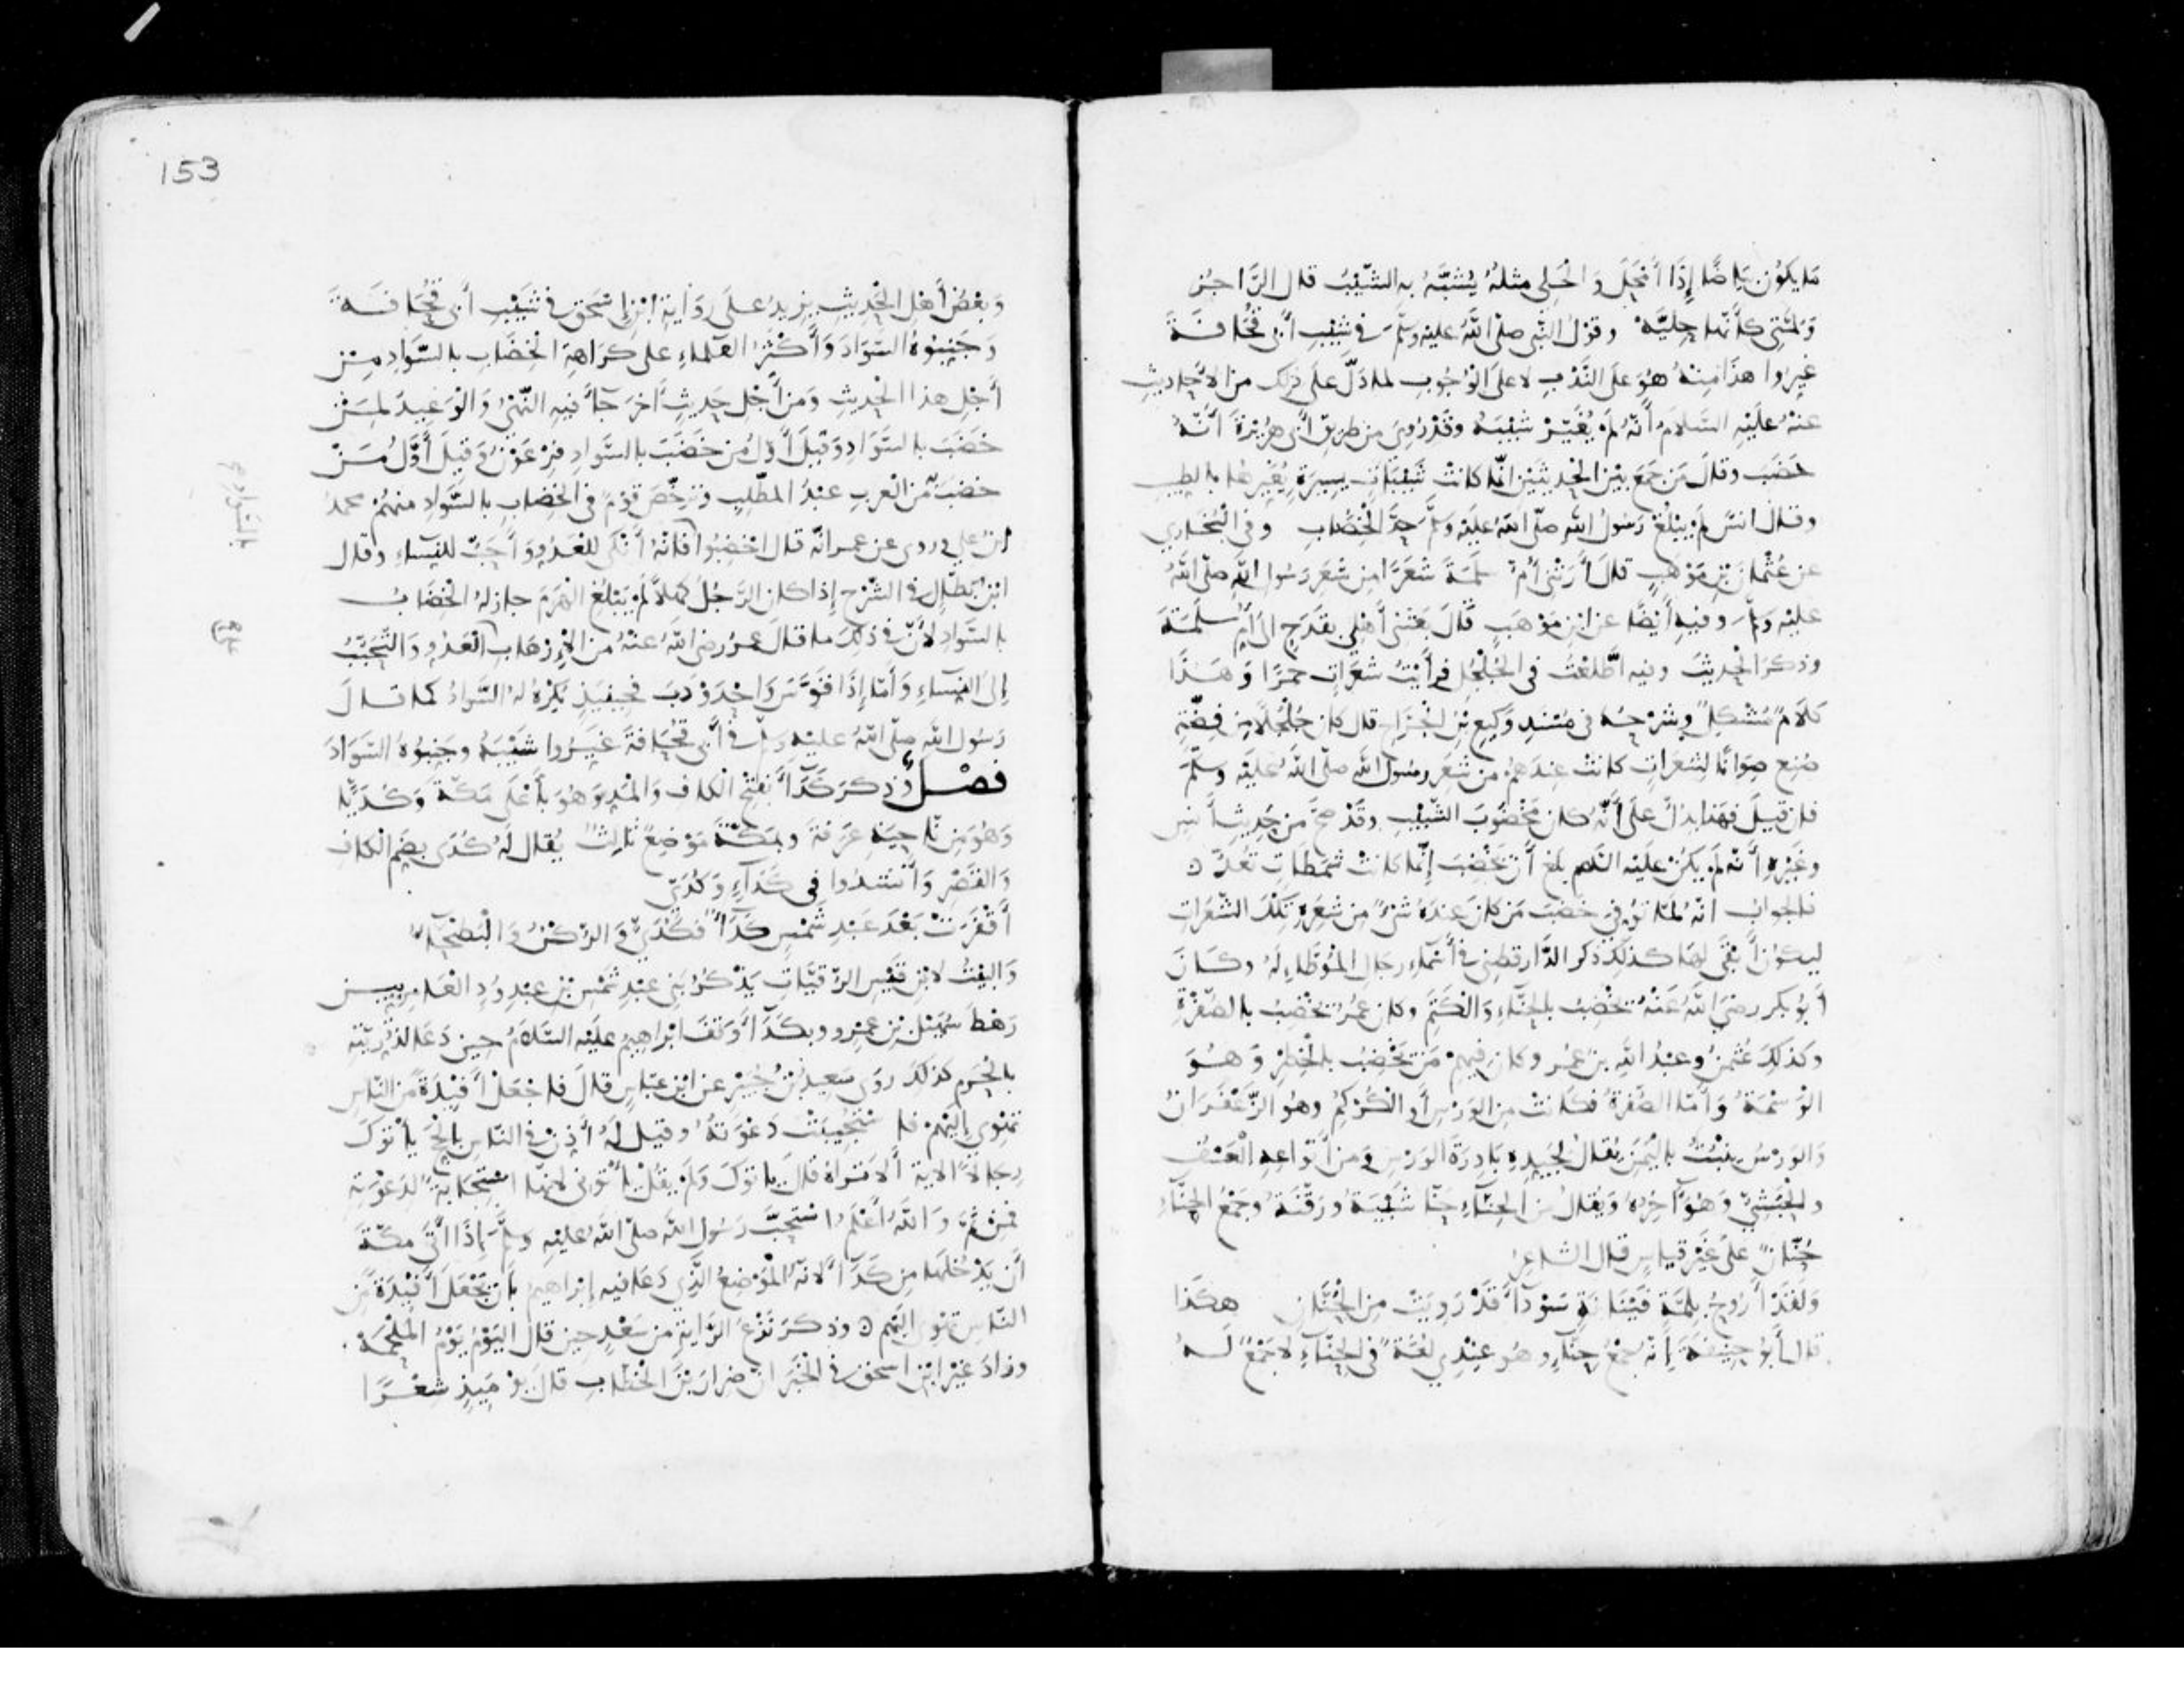 مَا يكوُن بَيَاضًا إِذَا أَمْحَلَ وَ الْحَلِى مثلهُ يُشبَّهُ بِهِ الشّيْبُ قال الرَّاجزُ
وَلمَّتِى كأَنّها حلِيَّهْ وقوْلُ النّبي صلّى اللّهُ عليْهِ وسلّم في شيْبِ أَبي قُحَافَةَ
غيرُوا هذا منهُ هُوَ علَى النَّدْبِ لا علَى الوُجُوبِ لما دَلَّ علَى ذلك من الأحاديثِ
عنْهُ علَيْهِ السَّلامُ أنّهُ لَم يُغَيّرْ شيْبَهُ وقَدْ رُوِىَ من طريقِ أَبي هُرَيْرةَ أَنّهُ
خضَبَ وقالَ مَن جَمَعَ بيْنَ الحديثَيْن إنّما كانتْ شَيْبَاتٍ يسِيرَةً يُغَيِّرهَا بالطيبِ
وقال انسٌ لَم يبْلُغْ رَسُولُ اللهِ صلّى اللهُ علَيْهِ وَسلّمَ حدَّ الْخِضَابِ وفي الْبُخَاري
عن عُثْمانَ بْنِ مَوْهَبٍ قالَ أَرَتْنى أُمُّ سلَمَةَ شعَرًا من شَعَرِ رَسُولِ اللهِ صلّى اللهُ
عليْهِ وسلّم وفيهِ أيْضًا عن ابْنِ مَوْهَبٍ قَالَ بعَثَنى أَهْلى بقَدَحٍ الى أُمّ سلَمَةَ
وذكرَ الْحديثَ وفيه اطَّلَعْتُ في الجُلْجُلِ فرأَيْتُ شعَرَاتٍ حمرًا وَهَذَا
كلاَمٌ مُشْكِلٌ وشَرْحُهُ في مُسْنَدِ وَكيعِ بْنِ الجَرّاحِ قال كان جُلْجُلاً من فِضّةٍ
صُنِعَ صوَانًا لِشعَرَاتٍ كانتْ عِندَهُم من شَعَرِ رسُولِ اللهِ صلّى اللهُ علَيْهِ وسلّمَ
فان قيلَ فهذا يدُلّ علَى أَنّه كان مَخْضُوبَ الشّيْبِ وقَدْ صحَّ من حديثِ أَنسٍ
وغَيْرِهِ أنّه لَم يكن علَيْهِ السّلام بلغ أَن يَخْضِبَ إِنّما كانتْ شَمَطَاتٍ تُعَدّ ٥
فالجوابُ انّهُ لمّا تُوُفّي خضَبَ مَن كان عِندَهُ شَىْءٌ من شعَرِهِ تِلْكَ الشّعَراتِ
ليكوُنَ أَبْقَى لهَا كذلكَ ذكر الدَّارقطنى في أَسْمَاءِ رجَالِ المُوَطّاءِ لَهُ وكانَ
أَبُو بكرٍ رضيَ اللهُ عَنْهُ يخْضِبُ بالحِنّاءِ وَالْكَتَمِ وكان عمَرُ يَخْضِبُ بالصّفْرَةِ
وكذلكَ عُثْمنُ وعبْدُ اللهِ بنُ عُمَر وكان فيهِم مَن يَخْضِبُ بالْخِطْرِ وَهُوَ
الْوَسْمَةُ وَأَمّا الصّفْرَةُ فكَانتْ من الوَرْسِ أَوِ الكُرْكُمِ وهُو الزَّعْفَرَانُ
وَالوَرْسُ ينْبُتُ بِاليَمَن يُقالُ لجَيّدِهِ بَادِرَةَ الوَرْسِ وَمن أَنوَاعِهِ الْعَسْفُ
والْحَبَشِيّ وَهُوَ آخِرُهُ وَيُقالُ من الحِنّاءِ حنّأ شَيْبَهُ ورَقّنَهُ وجَمْعُ الحِنّاءِ
حُنّانٌ علَى غَيْرِ قياسٍ قال الشّاعِرُ
وَلَقَدْ أَرُوحُ بِلِمَّةٍ فَيْنَانَةٍ سَوْدَاءَ قَدْ رَوِيَتْ مِن الحُنَّانِ هكَذَا
قال أَبُو حنِيفَةَ إِنّه جمْعُ حِنّاءٍ وهُو عِنْدِي لغَةٌ في الحِنّاءِ لا جَمْعٌ لَهُ
153
وَبعْضُ أَهْلِ الْحديثِ يزِيدُ عَلَى رِوَايَةِ ابْنِ إِسْحقَ في شَيْبِ أَبي قُحَافَةَ
وَجَنِّبُوهُ السّوَادَ وَأَكْثَرُ العُلَماءِ على كرَاهَةِ الْخِضَابِ بالسّوَادِ مِنْ
أَجْلِ هذا الْحديثِ وَمن أَجْلِ حديثٍ آخرَ جاءَ فيهِ النّهْىُ وَالْوَعِيدُ لِمَنْ
خَضَبَ بالسّوَادِ وَقيلَ أَوّلُ من خضَبَ بالسّوادِ فِرْعَوْنُ وَقيلَ أَوَّلُ مَنْ
خضبَ من الْعربِ عبْدُ المطّلِبِ وترَخّصَ قوْمٌ في الخضابِ بالسّوَادِ منهُم محمدُ
ابنُ علي وروى عن عمر انّه قال اخْضِبُوا فَانّهُ أَنْكَى للْعَدُوِّ وَأَحَبُّ للنّساءِ وقال
ابْنُ بَطّالٍ في الشّرْحِ إِذا كان الرَّجُلُ كهْلاً لَم يَبْلُغِ الْهَرَمَ جاز لهُ الْخِضَابُ
بالسّوَادِ لأَنّ في ذلكَ ما قالَ عمرُ رضى اللهُ عنْهُ من الإِرْهَابِ للْعَدُوِّ وَالتّحَبُّبِ
إلى النّسَاءِ وَأَمّا إِذَا قوَّسَ وَاحْدَوْدَبَ فحِينَئِذٍ يُكْرَهُ لهُ السَّوَادُ كما قالَ
رَسُولُ اللهِ صلّى اللهُ عليْهِ وسلّم في أَبي قُحَافةَ غَيّرُوا شَيْبَهُ وجَنِّبُوهُ السّوَادَ
فصْلٌ وذكرَ كَدَاءً بفَتْحِ الكاف وَالمَدِّ وَهُوَ بأَعْلَى مَكّة وَكُدَيًّا
وَهُوَ مِن نّاحيَةِ عَرَفةَ وبمكّةَ مَوْضِعٌ ثالِثٌ يُقال لَهُ كُدًى بضَمِّ الكاف
وَالقَصْرِ وَأَنْشَدُوا فى كَدَآءٍ وَكُدَيٍّ
أَقْفَرَتْ بَعْدَ عَبْدِ شَمْسٍ كَدَآءٌ فكُدَيٌّ وَ الرّكْنُ وَ الْبَطْحَآءُ
وَالبيْتُ لابْنِ قيْسِ الرّقيّاتِ يَذْكُرُ بَنى عبْدِ شَمْسِ بْنِ عبْدِ وُدٍّ العَامِرِيّينَ
رَهْطَ سُهَيْلِ بْنِ عمْرٍو وبكَدَاءَ وَقَفَ ابْراهيمُ علَيْهِ السّلامُ حينَ دَعَا لذُرّيّتِهِ
بالْحَرمِ كذلكَ روَى سَعِيدُ بْنُ جُبَيْرٍ عن ابْنِ عبّاسٍ قالَ فاجْعَلْ أَفْئِدَةً من النّاسِ
تَهْوِي إِليْهِم فاسْتُجِيبَتْ دَعْوَتُهُ وقيلَ لَهُ أَذِّنْ في النّاسِ بالحَجِّ يأْتوكَ
رِجالاً الاية أَلاَ تَراهُ قالَ يَأتوكَ وَلَم يقُلْ يأْتونى لانّها اسْتِجَابَةٌ لدَعْوَتهِ
فمِنْ ثَمَّ وَ اللهُ أَعْلَمُ اسْتَحبَّ رَسُولُ اللهِ صلّى اللهُ عليْهِ وسلّمَ إِذَا أَتَى مكّةَ
أَن يدْخُلَها من كَدَاءٍ لانّهُ المَوْضِعُ الَّذِي دَعَا فيه إبْراهيم بأن يَجْعَلَ أَفْئِدَةً من
النّاسِ تهْوِى إليهم ٥ وذكرَ نزْعَ الرّايةِ من سَعْدٍ حين قال اليَوْمُ يَوْمُ المَلْحَمَة
وزادَ غيْرُ ابْنِ اسحق في الْخَبَرِ انّ ضرَارَ بْنَ الْخطّابِ قالَ يوْمَئِذٍ شعْرًا